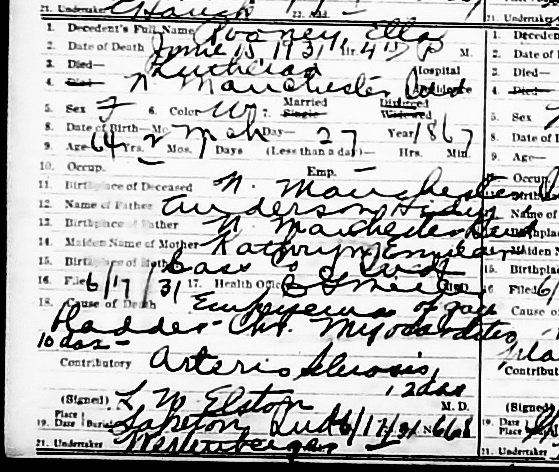 21. Undertaker 22. Add.
1. Decedent's Full Name Rooney, Ella
2. Date of Death June 15 1931 Hr. 4 15 P M.
3. Died— Lutheran Hospital
4. Died— N Manchester Ind Residence
5. Sex F 6. Color W 7. Married Single Divorced Widowed
8. Date of Birth— Mo. Mch Day— 27 Year 1867
9. Age 64 Yrs. 2 Mos. Days (Less than a day)— Hrs. Min.
10. Occup. — Emp.
11. Birthplace of Deceased N. Manchester
12. Name of Father Anderson
13. Birthplace of Father N Manchester Ind
14. Maiden Name of Mother Kathryn
15. Birthplace of Mother Cass Co Ind
16. Filed 6/17/31 17. Health Officer
18. Cause of Death Empyema of gall
bladder - Chr. Myocarditis
10 das -
Contributory Arterio Sclerosis
12 das
(Signed) L W Elston M. D.
19. Place Date Burial Laketon Ind 6/17/31 N 668
21. Undertaker
21. Undertaker
1. Deceden
2. Date of
3. Died—
4. Died—
5. Sex
8. Date of
9. Age—
Occup.
Name of
Maiden
15. Birthplac
16. Filed 6/
Cause of
Contribut
(Signed)
19. Place Date
21. Undertaker